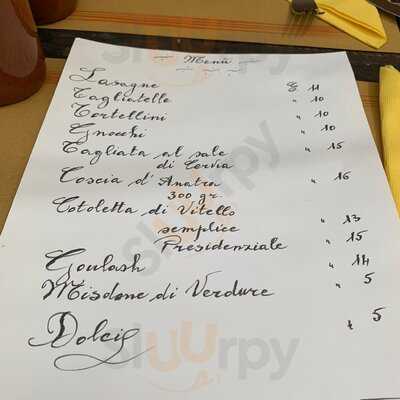 Menù
Lasagne € 11
Tagliatelle " 10
Tortellini " 10
Gnocchi " 10
Tagliata al sale " 15
di Cervia
Coscia d'Anatra " 16
300 gr.
Cotoletta di Vitello
semplice " 13
Presidenziale " 15
Goulash " 14
Misdone di Verdure " 5
Dolci " 5
sluurpy